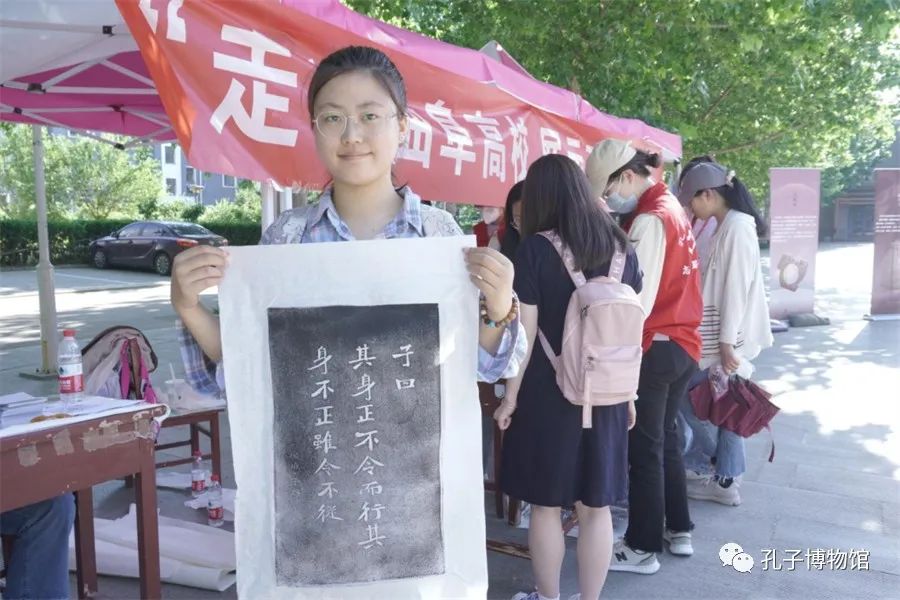 “走
曲阜高校 展示
子曰
其身正不令而行其
身不正雖令不從
孔子博物馆